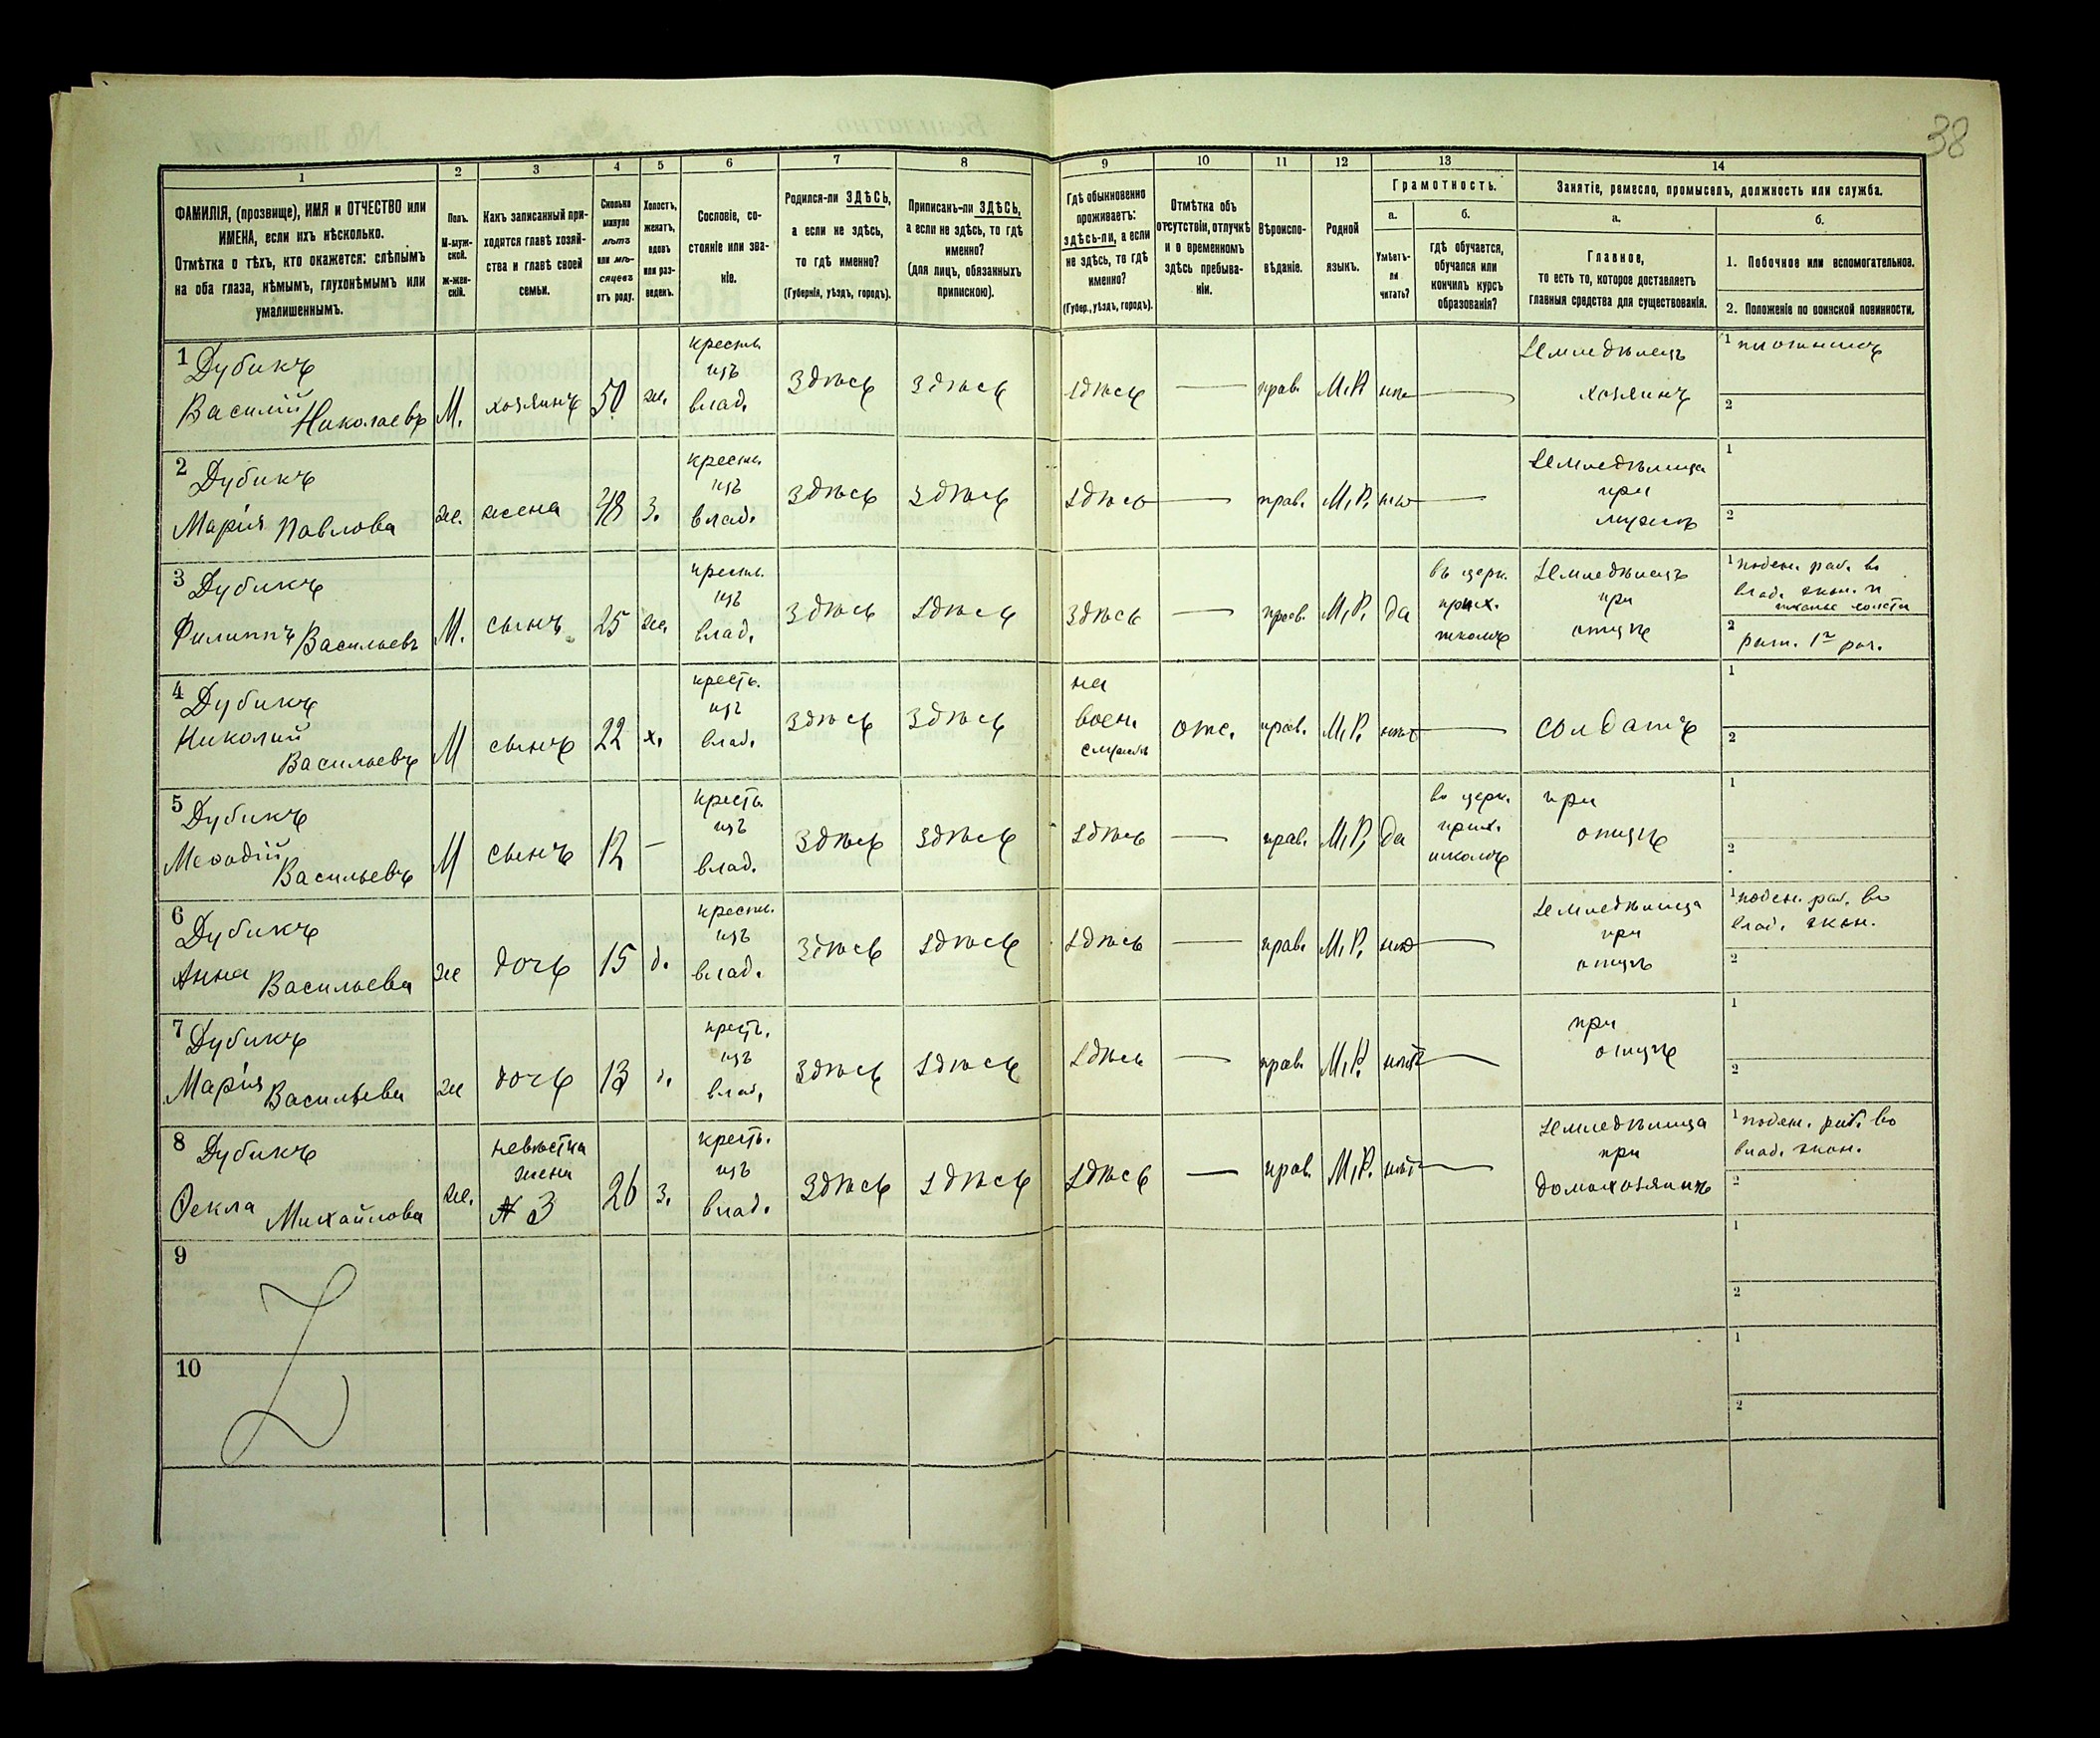 38
1 2 3 4 5 6 7 8 9 10 11 12 13 14
ФАМИЛІЯ, (прозвище), ИМЯ и ОТЧЕСТВО или
ИМЕНА, если ихъ нѣсколько.
Отмѣтка о тѣхъ, кто окажется: слѣпымъ
на оба глаза, нѣмымъ, глухонѣмымъ или
умалишеннымъ.
Полъ.
М-муж-
ской.
Ж-жен-
скій.
Какъ записанный при-
ходится главѣ хозяй-
ства и главѣ своей
семьи.
Сколько
минуло
лѣтъ
или мѣ-
сяцевъ
отъ роду.
Холостъ,
женатъ,
вдовъ
или раз-
веденъ.
Сословіе, со-
стояніе или зва-
ніе.
Родился-ли ЗДѢСЬ,
а если не здѣсь,
то гдѣ именно?
(Губернія, уѣздъ, городъ).
Приписанъ-ли ЗДѢСЬ,
а если не здѣсь, то гдѣ
именно?
(для лицъ, обязанныхъ
припискою).
Гдѣ обыкновенно
проживаетъ:
здѣсь-ли, а если
не здѣсь, то гдѣ
именно?
(Губер., уѣздъ, городъ).
Отмѣтка объ
отсутствіи, отлучкѣ
и о временномъ
здѣсь пребыва-
ніи.
Вѣроиспо-
вѣданіе.
Родной
языкъ.
Грамотность.
а.
Умѣетъ-
ли
читать?
б.
гдѣ обучается,
обучался или
кончилъ курсъ
образованія?
Занятіе, ремесло, промыселъ, должность или служба.
а.
Главное,
то есть то, которое доставляетъ
главныя средства для существованія.
б.
1. Побочное или вспомогательное.
2. Положеніе по воинской повинности.
1 Дубикъ
Василій Николаевъ
М.
хозяинъ
50
же.
крестья.
изъ
влад.
Здѣсь
Здѣсь
здѣсь
—
прав.
М.Р.
нѣ
—
земледѣлецъ
хозяинъ
1 плотникъ
2
2 Дубикъ
Марія Павлова
же.
жена
48
з.
крестья.
изъ
влад.
Здѣсь
Здѣсь
здѣсь
—
прав.
М.Р.
нѣт
—
земледѣлица
при
мужѣ
1
2
3 Дубикъ
Филиппъ Васильевъ
М.
сынъ
25
же.
крестья.
изъ
влад.
Здѣсь
здѣсь
Здѣсь
—
прав.
М.Р.
да
въ церк.
прих.
школѣ
земледѣлецъ
при
отцѣ
1 поден. раб. во
влад. экон. и
тканье холста
2 рат. 1го раз.
4 Дубикъ
Николай
Васильевъ
М
сынъ
22
х.
кресть.
изъ
влад.
Здѣсь
Здѣсь
на
воен.
службѣ
отс.
прав.
М.Р.
нѣт
—
солдатъ
1
2
5 Дубикъ
Меѳодій
Васильевъ
М
сынъ
12
—
кресть.
изъ
влад.
Здѣсь
Здѣсь
здѣсь
—
прав.
М.Р.
да
во церк.
прих.
школѣ
при
отцѣ
1
2
6 Дубикъ
Анна Васильева
же
дочь
15
д.
крестья.
изъ
влад.
Здѣсь
здѣсь
здѣсь
—
прав.
М.Р.
нѣт
—
земледѣлица
при
отцѣ
1 поден. раб. во
влад. экон.
2
7 Дубикъ
Марія Васильева
же
дочь
13
д.
кресть.
изъ
влад.
Здѣсь
здѣсь
здѣсь
—
прав.
М.Р.
нѣт
—
при
отцѣ
1
2
8 Дубикъ
Ѳекла Михайлова
же.
невѣстка
жена
№ 3
26
з.
кресть.
изъ
влад.
Здѣсь
здѣсь
здѣсь
—
прав.
М.Р.
нѣт
—
земледѣлица
при
домохозяинѣ
1 поден. раб. во
влад. экон.
2
9
1
2
10
1
2